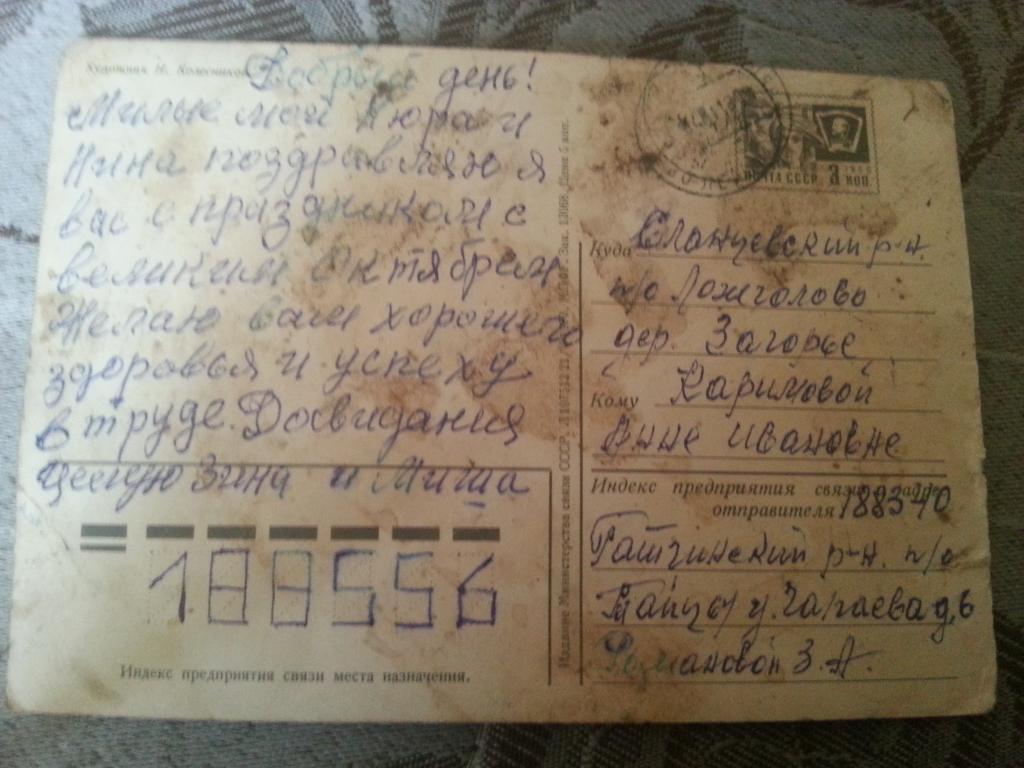 Художник Н. Колесников
Добрый день!
Милые мои Нюра и
Нина поздравляю я
вас с праздником с
великим Октябрём
Желаю вам хорошего
здоровья и успеху
в труде. Досвидания
целую Зина и Миша
188556
Индекс предприятия связи места назначения.
Издание Министерства связи СССР. Зак. 13068. Цена 5 коп.
ПОЧТА СССР 3 КОП.
Куда Сланцевский р-н.
п/о Ложголово
дер. Загорье
Кому Каримовой
Анне Ивановне
Индекс предприятия связи и адрес
отправителя 188340
Гатчинский р-н. п/о
Тайцы у. Чапаева д. 6
Романовой З. А.